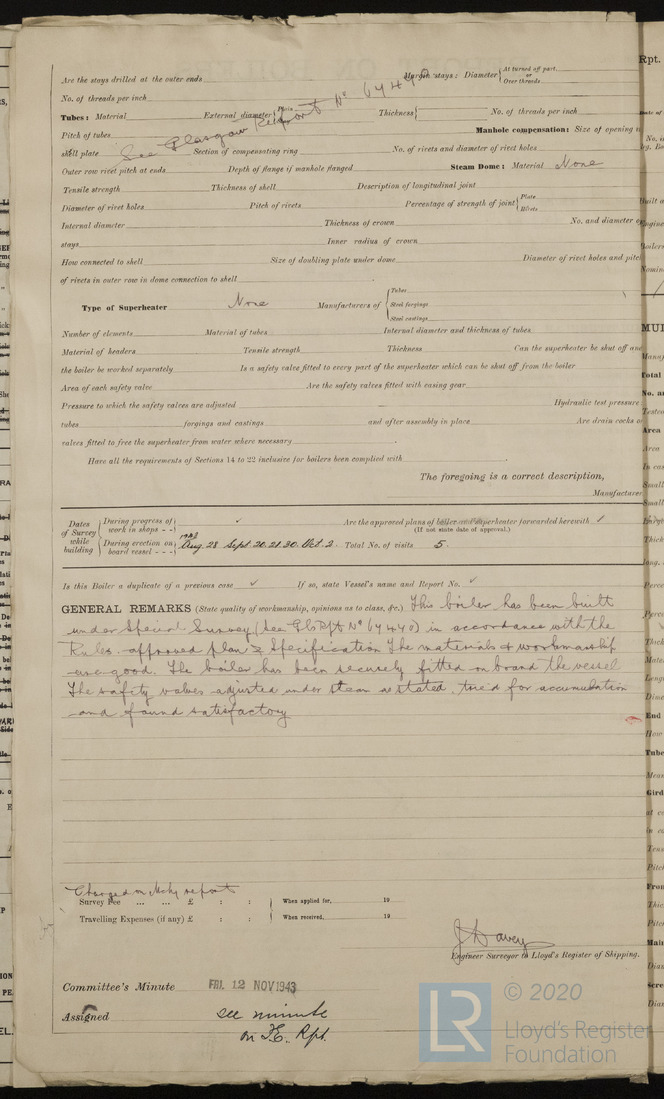 Are the stays drilled at the outer ends Margin stays: Diameter { At turned off part, or Over threads
No. of threads per inch
Tubes: Material External diameter { Plain Thickness { No. of threads per inch
Pitch of tubes Manhole compensation: Size of opening
See Glasgow Report No 67440
shell plate Section of compensating ring No. of rivets and diameter of rivet holes
Outer row rivet pitch at ends Depth of flange if manhole flanged Steam Dome: Material None
Tensile strength Thickness of shell Description of longitudinal joint
Diameter of rivet holes Pitch of rivets Percentage of strength of joint { Plate Rivets
Internal diameter Thickness of crown No. and diameter o
stays Inner radius of crown
How connected to shell Size of doubling plate under dome Diameter of rivet holes and pitc
of rivets in outer row in dome connection to shell
Type of Superheater None Manufacturers of { Tubes Steel forgings Steel castings
Number of elements Material of tubes Internal diameter and thickness of tubes
Material of headers Tensile strength Thickness Can the superheater be shut off and
the boiler be worked separately Is a safety valve fitted to every part of the superheater which can be shut off from the boiler
Area of each safety valve Are the safety valves fitted with easing gear
Pressure to which the safety valves are adjusted Hydraulic test pressure
tubes forgings and castings and after assembly in place Are drain cocks o
valves fitted to free the superheater from water where necessary
Have all the requirements of Sections 14 to 22 inclusive for boilers been complied with
The foregoing is a correct description,
Manufacturer
Dates of Survey while building { During progress of work in shops - - { ✓ Are the approved plans of boiler and superheater forwarded herewith ✓
(If not state date of approval.)
During erection on board vessel - - - { 1943 Aug 28 Sept 20.21.30. Oct. 2. Total No. of visits 5.
Is this Boiler a duplicate of a previous case ✓ If so, state Vessel's name and Report No. ✓
GENERAL REMARKS (State quality of workmanship, opinions as to class, &c.) This boiler has been built
under Special Survey (see Gls Rpt No 67440) in accordance with the
Rules approved plan & Specification The materials & workmanship
are good. The boiler has been securely fitted on board the vessel
The safety valves adjusted under steam as stated, tried for accumulation
and found satisfactory
Charged on Mchy report
Survey Fee ... ... £ : : { When applied for, 19
Travelling Expenses (if any) £ : : { When received, 19
J Davey
Engineer Surveyor to Lloyd's Register of Shipping.
Committee's Minute FRI. 12 NOV 1943
Assigned see minute
on F.E. Rpt.
LR © 2020
Lloyd's Register
Foundation